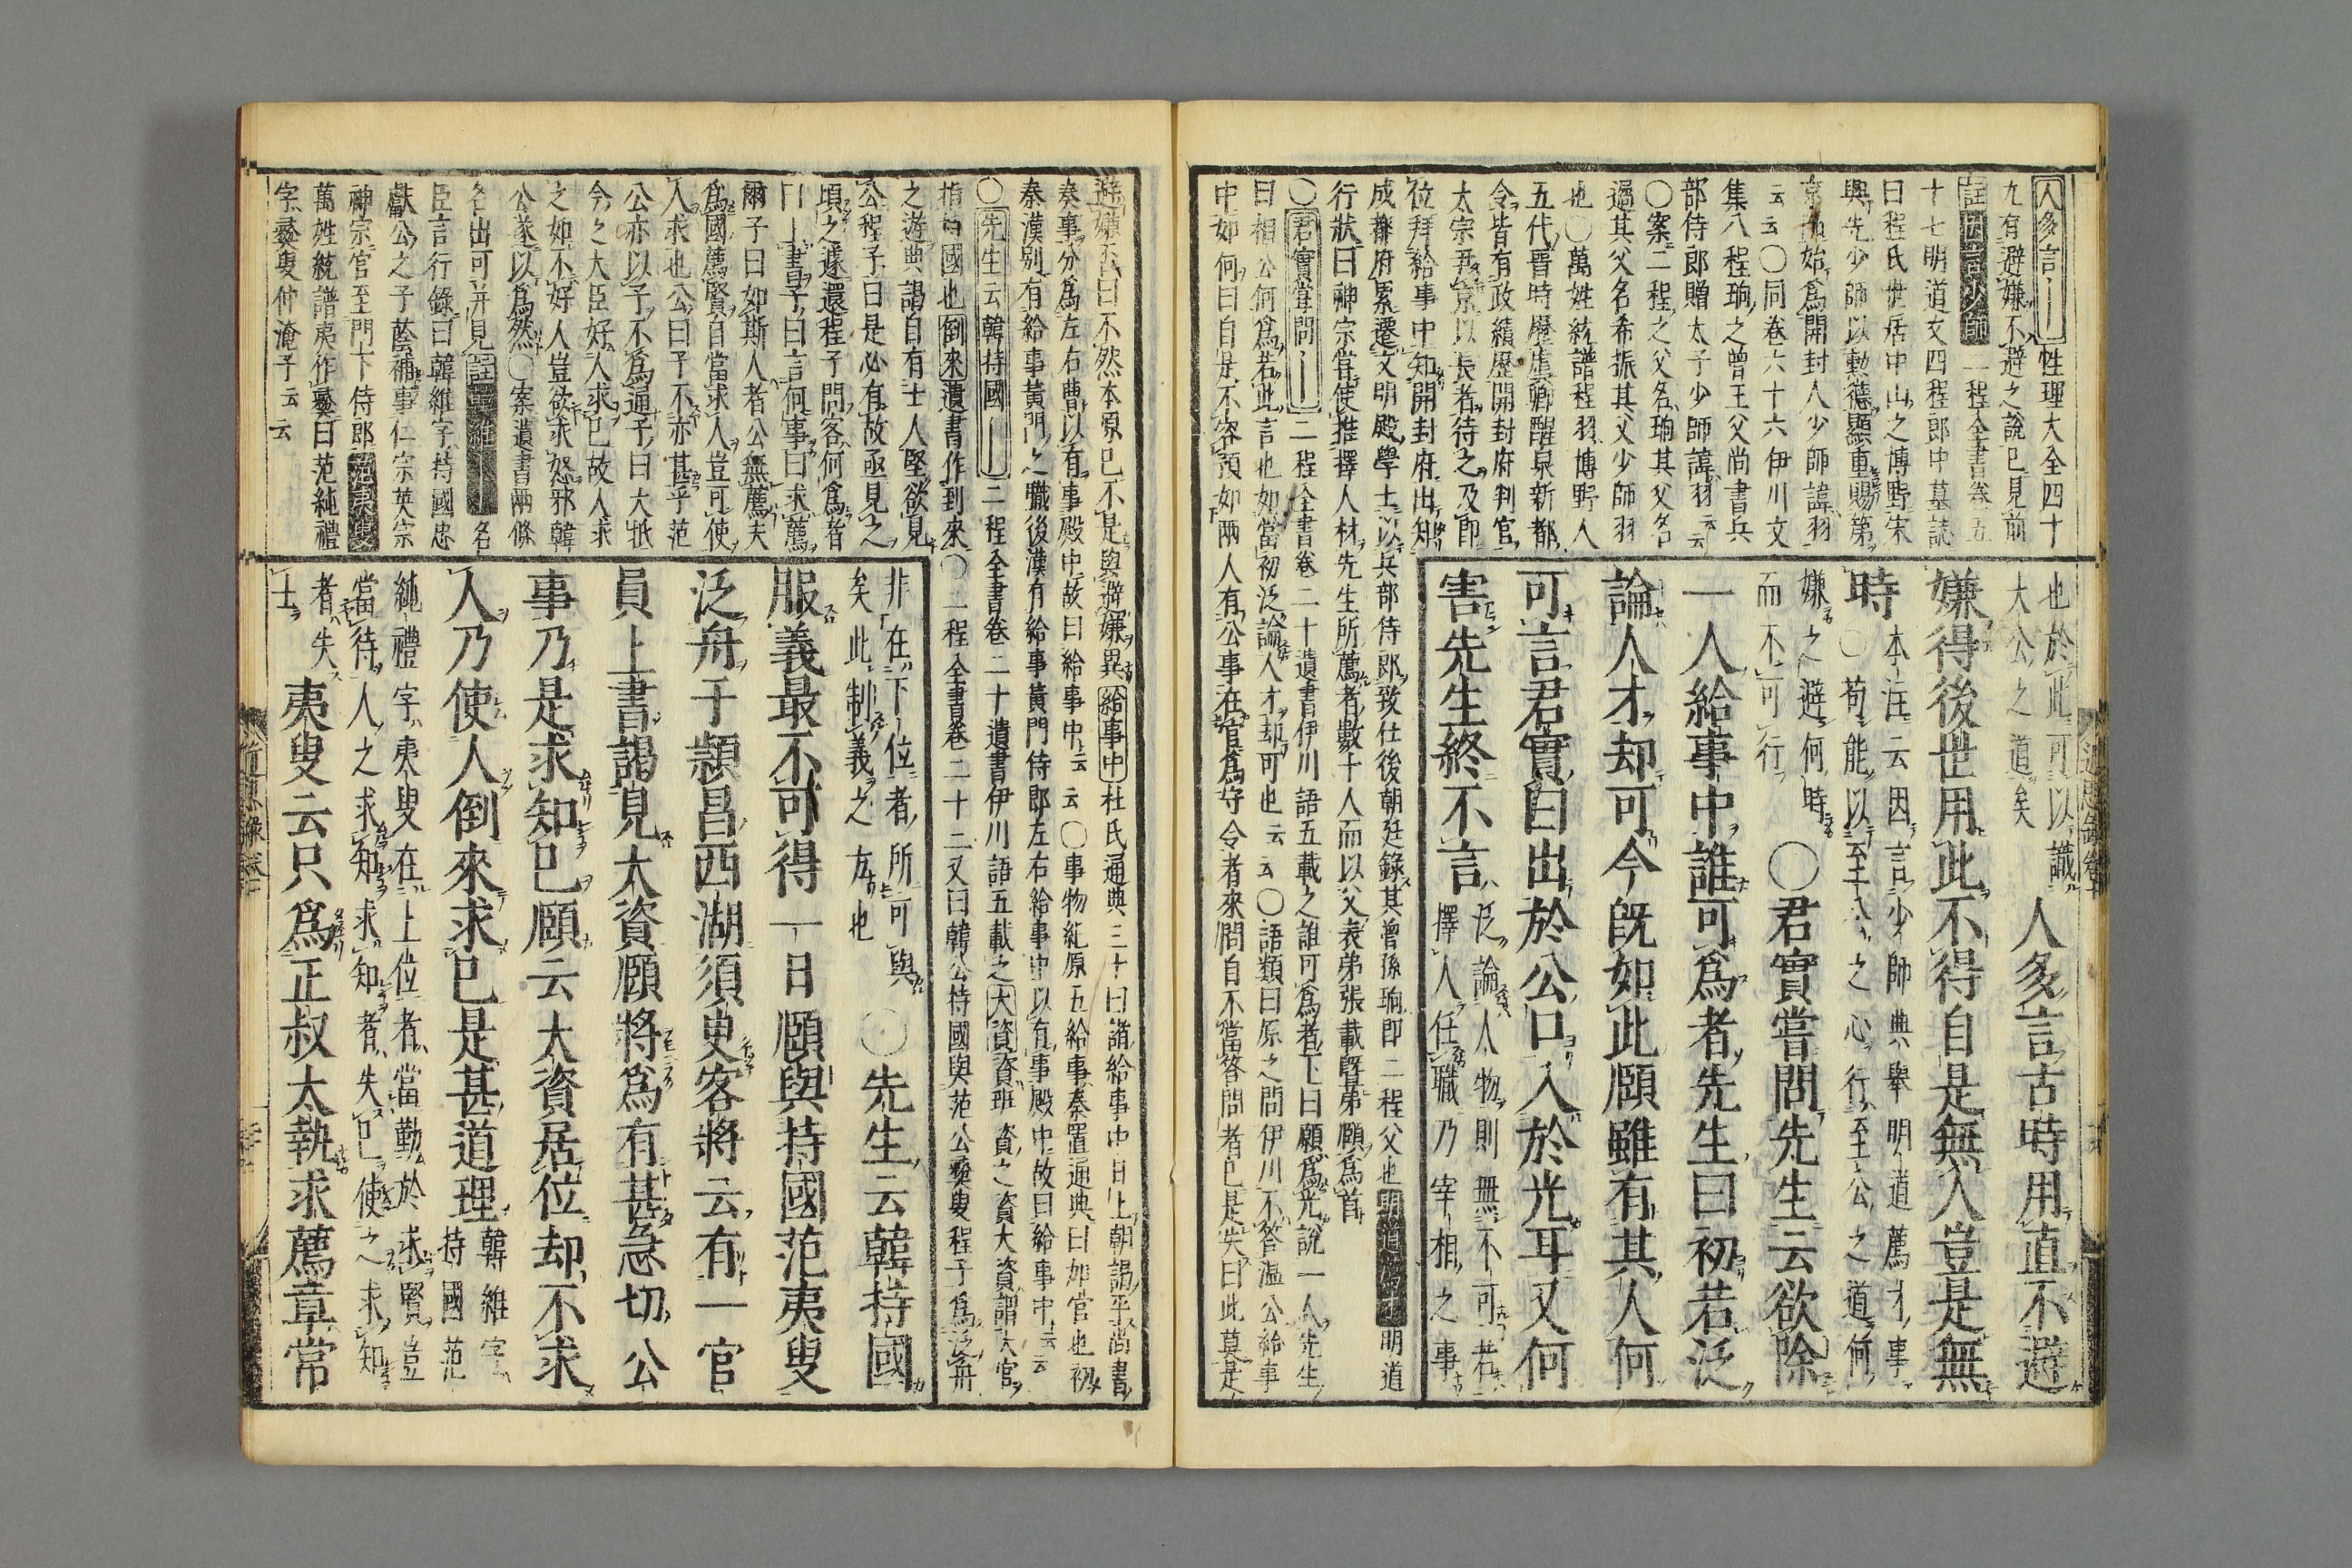 人多言〡性理大全四十
九有避嫌不避之說已見前
註因言少師二程全書卷五
十七明道文四程郎中墓誌
曰程氏世居中山之博野宋
興先少師以勳德顯重賜第
京師始爲開封人少師諱羽
云云〇同卷六十六伊川文
集八程珦之曾王父尚書兵
部侍郎贈太子少師諱羽云云
〇案二程之父名珦其父名
遹其父名希振其父少師羽
也〇萬姓統譜程羽博野人
五代晋時歷虛鄉醴泉新都
令皆有政績歷開封府判官
太宗尹京以長者待之及即
位拜給事中知開封府出知
成都府累遷文明殿學士以兵部侍郎致仕後朝廷錄其曾孫珦即二程父也明道薦才明道
行狀曰神宗嘗使推擇人材先生所薦者數十人而以父表弟張載曁弟頤爲首
〇君實嘗問〡二程全書卷二十遺書伊川語五載之誰可爲者下曰願爲光說一人先生
曰相公何爲若此言也如當初泛論人才却可也云云〇語類曰原之問伊川不答溫公給事
中如何曰自是不容預如兩人有公事在官爲守令者來問自不當答問者已是失曰此莫是
也於此可以識
大公之道矣
人多言古時用直不避
嫌得後世用此不得自是無人豈是無
時
本注云因言少師典舉明道薦才事
〇苟能以至公之心行至公之道何
嫌之避何時
而不可行
〇君實嘗問先生云欲除
一人給事中誰可爲者先生曰初若泛
論人才却可今旣如此頤雖有其人何
可言君實曰出於公口入於光耳又何
害先生終不言
泛論人物則無不可若
擇人任職乃宰相之事
避嫌否曰不然本原已不是與避嫌異給事中杜氏通典二十曰諸給事中日上朝謁平尚書
奏事分爲左右曹以有事殿中故曰給事中云云〇事物紀原五給事秦置通典曰加官也初
秦漢別有給事黃門之職後漢有給事黃門侍郎左右給事中以有事殿中故曰給事中云云
〇先生云韓持國〡二程全書卷二十遺書伊川語五載之大資資班資之資大資謂大官
指持國也倒來遺書作到來〇二程全書卷二十二又曰韓公持國與范公彛叟程子爲泛舟
之遊典謁自有士人堅欲見
公程子曰是必有故亟見之
頃之遽還程子問客何爲者
曰上書子曰言何事曰求薦
爾子曰如斯人者公無薦夫
爲國薦賢自當求人豈可使
人求也公曰予不亦甚乎范
公亦以子不爲通子曰大抵
今之大臣好人求己故人求
之如不好人豈欲求怒邪韓
公遂以爲然〇案遺書兩條
各出可并見註韓維〡名
臣言行錄曰韓維字持國忠
獻公之子蔭補事仁宗英宗
神宗官至門下侍郎范夷叟
萬姓統譜夷作彛曰范純禮
字彛叟仲淹子云云
非在下位者所可與
矣此制義之方也
〇先生云韓持國
服義最不可得一日頤與持國范夷叟
泛舟于潁昌西湖須臾客將云有一官
員上書謁見大資頤將爲有甚急切公
事乃是求知己頤云大資居位却不求
人乃使人倒來求己是甚道理
韓維字
持國范
純禮字夷叟在上位者當勤於求賢豈
當待人之求知求知者失己使之求知
者失
士
夷叟云只爲正叔太執求薦章常